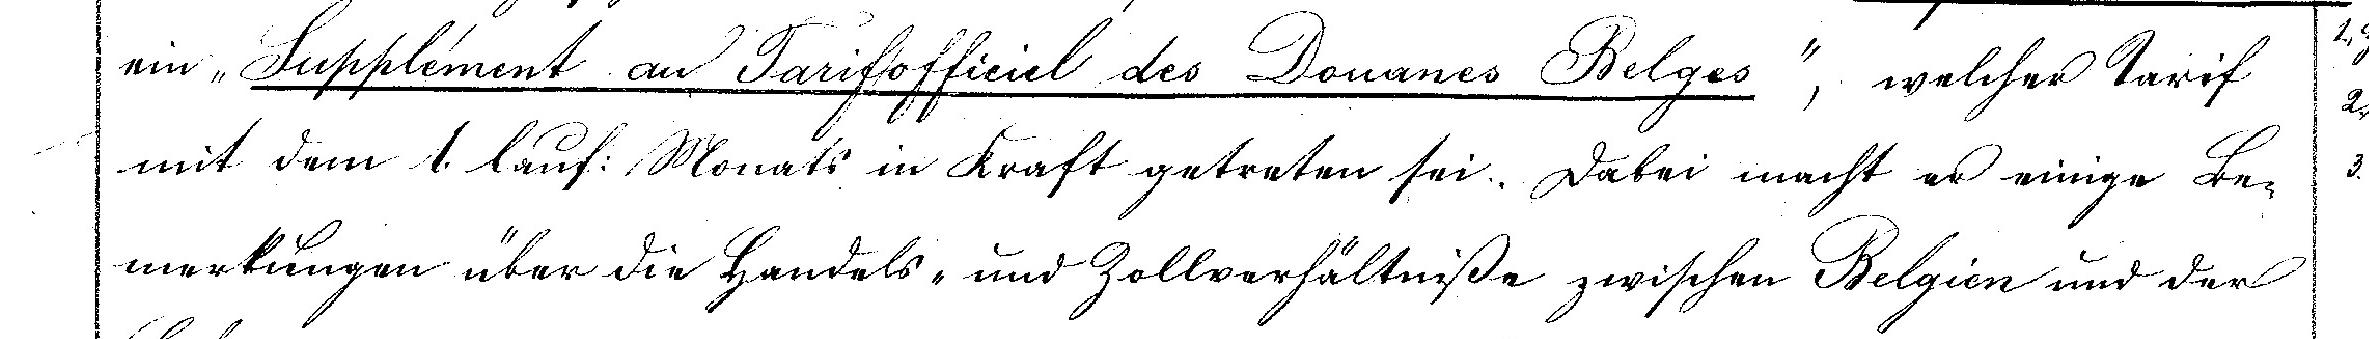 ein „Supplément au Tarif officiel des Douanes Belges", welcher Tarif
mit dem 1. lauf: Monats in Kraft getreten sei. Dabei macht er einige Be-
merkungen über die Handels- und Zollverhältniße zwischen Belgien und der